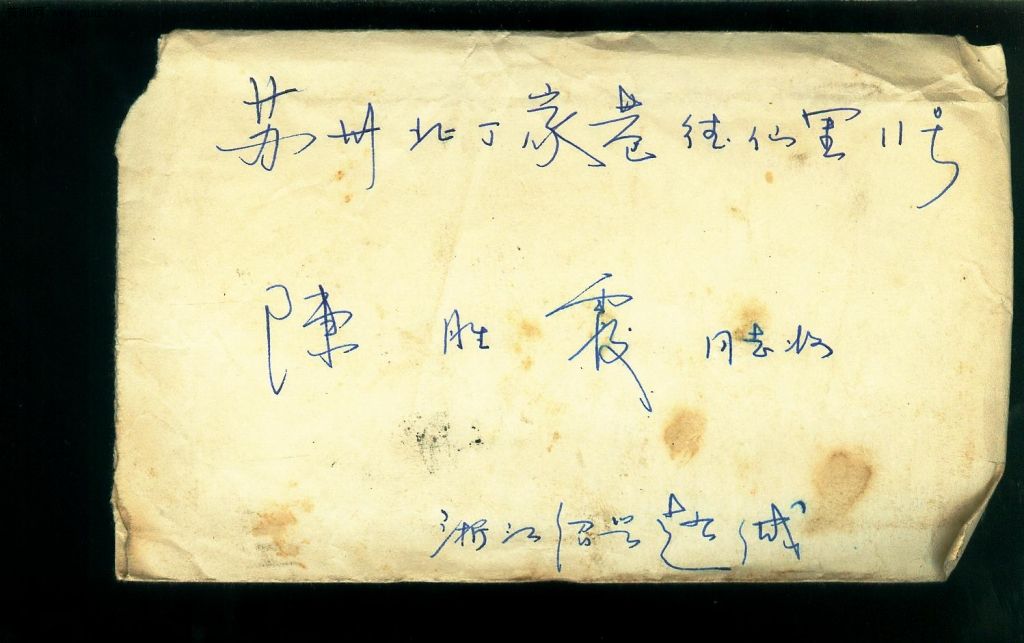 苏州北丁家巷 仙里11号
陳胜霞同志收
浙江绍兴赵缄